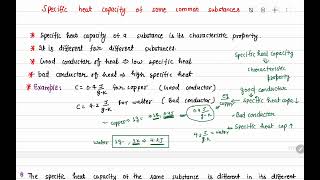 Specific heat capacity of some common substances
* Specific heat capacity of a substance is its characteristic property.
* It is different for different substances.
* Good conductor of heat ⇒ low specific heat
* bad conductor of heat ⇒ high specific heat
* Example: C = 0.4 J/g-K for copper (Good conductor)
C = 4.2 J/g-K for water (Bad conductor)
copper
0.4 J/g-K
water 1g, 1K → 4.2 J
4.2 J/g-K = water
Specific heat capacity
↓
characteristic property
good conductor
↳ specific heat cap ↓
- Bad conductor
↳ Specific heat cap ↑
The specific heat capacity of the same substance is different in its different